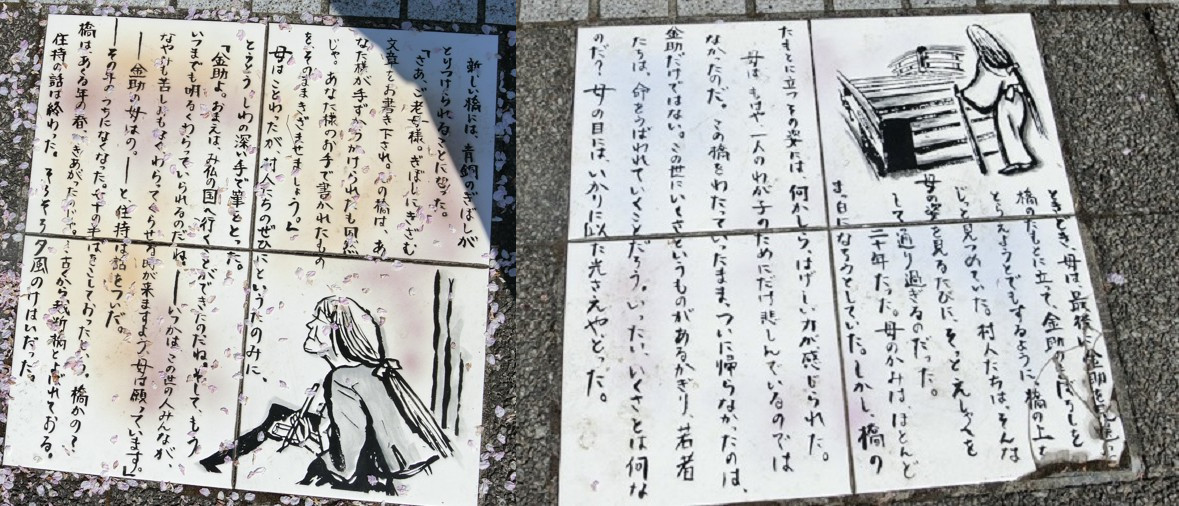 新しい橋には、青銅のぎぼしが
とりつけられることになった。
「さあ、ご老母様。ぎぼしにきざむ
文章をお書き下され。この橋は、あ
なた様が手ずからかけられたも同然
じゃ。あなた様のお手で書かれたもの
をそのままきざませましょう。」
母はことわったが、村人たちのぜひにというたのみに、
とうとう しわの深い手で筆をとった。
「金助よ。おまえは、み仏の国へ行くことができたのだね。そして、もう
いつまでも明るくわらっていられるのだね。――いつかは、この世の人みんなが、
なやみも苦しみもなくわらってくらせる日が来ますよう、母は願っています。」
――金助の母はの。――と、住持は話をついだ。
――その年のうちになくなった。
橋はあくる年の春、できあがったのじゃ。
橋かの?
住持の話は終わった。そろそろ夕風のけはいだった。
ときどき、母は、最後に金助を
橋のたもとに立って、金助のまぼろしを
とらえようとでもするように、橋の上を
じっと見つめていた。村人たちは、そんな
母の姿を見るたびに、そっとえしゃくを
して通り過ぎるのだった。
二十年たった。母のかみは、ほとんど
ま白になろうとしていた。しかし、橋の
たもとに立つその姿には、何かしらはげしい力が感じられた。
母は、もはや、一人のわが子のためにだけ悲しんでいるのでは
なかったのだ。この橋をわたっていったまま、ついに帰らなかったのは、
金助だけではない。この世にいくさというものがあるかぎり、若者
たちは、命をうばわれていくことだろう。いったい、いくさとは何な
のだ? 母の目には、いかりに似た光さえやどった。